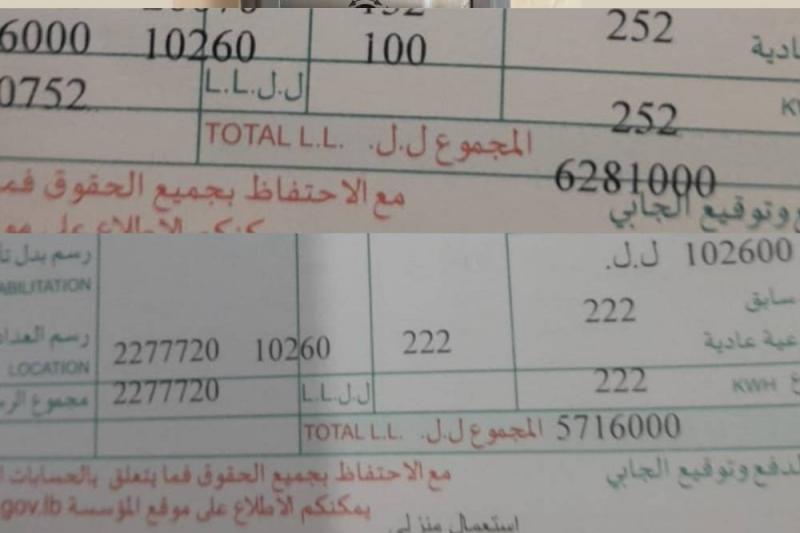 252
6000 10260 100 عادية
0752 ل.ل. L.L.
252
TOTAL L.L. المجموع ل.ل. 6281000
مع الاحتفاظ بجميع الحقوق
وتوقيع الجابي
رسم بدل
102600 ل.ل.
ABILITATION
222 سابق
رسم العداد 2277720 10260 222 عادية
LOCATION
مجموع 2277720 L.L. ل.ل 222 KWH
TOTAL L.L. المجموع ل.ل. 5716000
مع الاحتفاظ بجميع الحقوق فما يتعلق بالحسابات
لدفع وتوقيع الجابي
يمكنكم الأطلاع على موقع المؤسسة gov.lb
استعمال منزلي